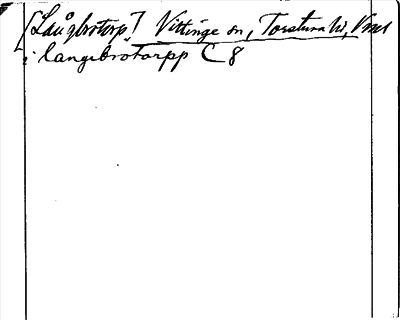 [Långbrotorp] Vittinge sn, Torstuna hd, Vml
i langebrotorpp C 8